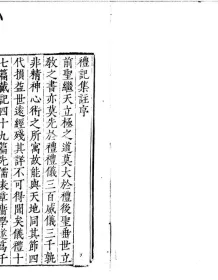 禮記集註序
前聖繼天立極之道莫大於禮後聖垂世立
教之書亦莫先於禮禮儀三百威儀三千孰
非精神心術之所寓故能與天地同其節四
代損益世遠經殘其詳不可得聞矣儀禮十
七篇戴記四十九篇先儒表章庸學遂為千